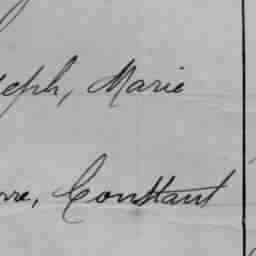 seph, Marie
rre, Constant